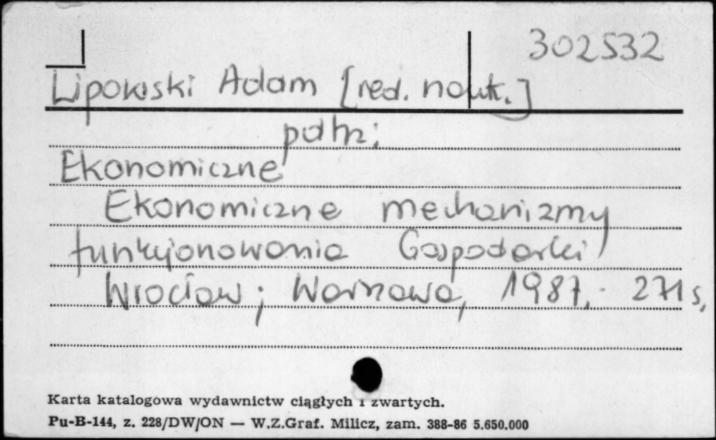 302532
Lipowski Adam [red. nauk.]
patrz:
Ekonomiczne
Ekonomiczne mechanizmy
funkcjonowania Gospodarki
Wrocław; Warszawa, 1987,. 271 s,
Karta katalogowa wydawnictw ciągłych i zwartych.
Pu-B-144, z. 228/DW/ON — W.Z.Graf. Milicz, zam. 388-86 5.650.000